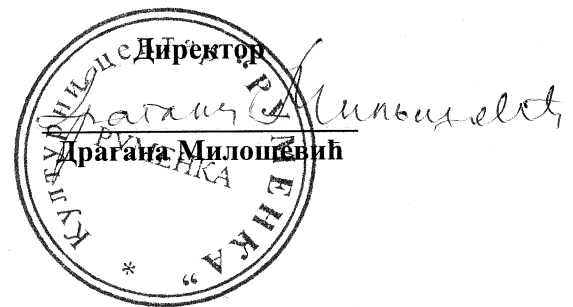 Директор
Драгана Милошевић
Драгана Милошевић
* Културни центар "РУМЕНКА"
РУМЕНКА
*